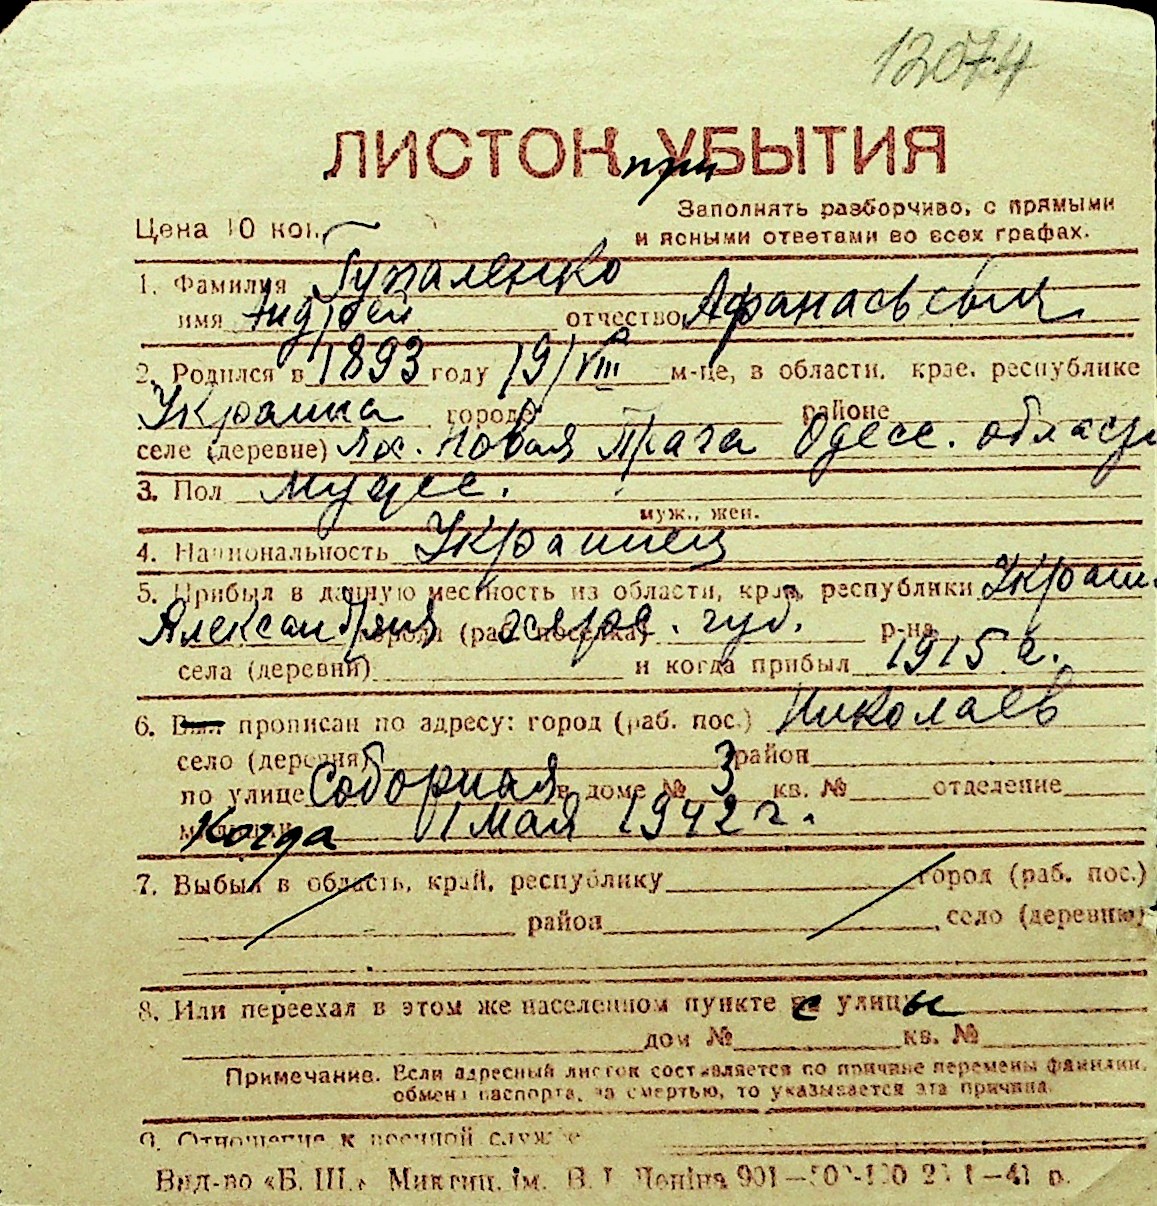 12074
ЛИСТОК при УБЫТИЯ
Заполнять разборчиво, с прямыми
и ясными ответами во всех графах.
Цена 10 коп.
1. Фамилия Гупаленко
имя Андрей отчество Афанасьевич
2. Родился в 1893 году 19/VIII м-це, в области, крае, республике
Украина городе районе
селе (деревне) пос. Новая Прага Одесс. область
3. Пол мужс.
муж., жен.
4. Национальность Украинец
5. Прибыл в данную местность из области, края, республики Украин.
Александрия города (раб. поселка) херс. губ. р-на
села (деревни) и когда прибыл 1915 г.
6. Был прописан по адресу: город (раб. пос.) Николаев
село (деревня) район
по улице Соборная в доме № 3 кв. № отделение
милиции Когда 1 мая 1942 г.
7. Выбыл в область, край, республику город (раб. пос.)
район , село (деревню)
8. Или переехал в этом же населенном пункте с улицы
дом № кв. №
Примечание. Если адресный листок составляется по причине перемены фамилии,
обмена паспорта, за смертью, то указывается эта причина.
9. Отношение к военной службе
Вид-во «Б. Ш.» Микггиц. ім. В. І. Леніна 901—